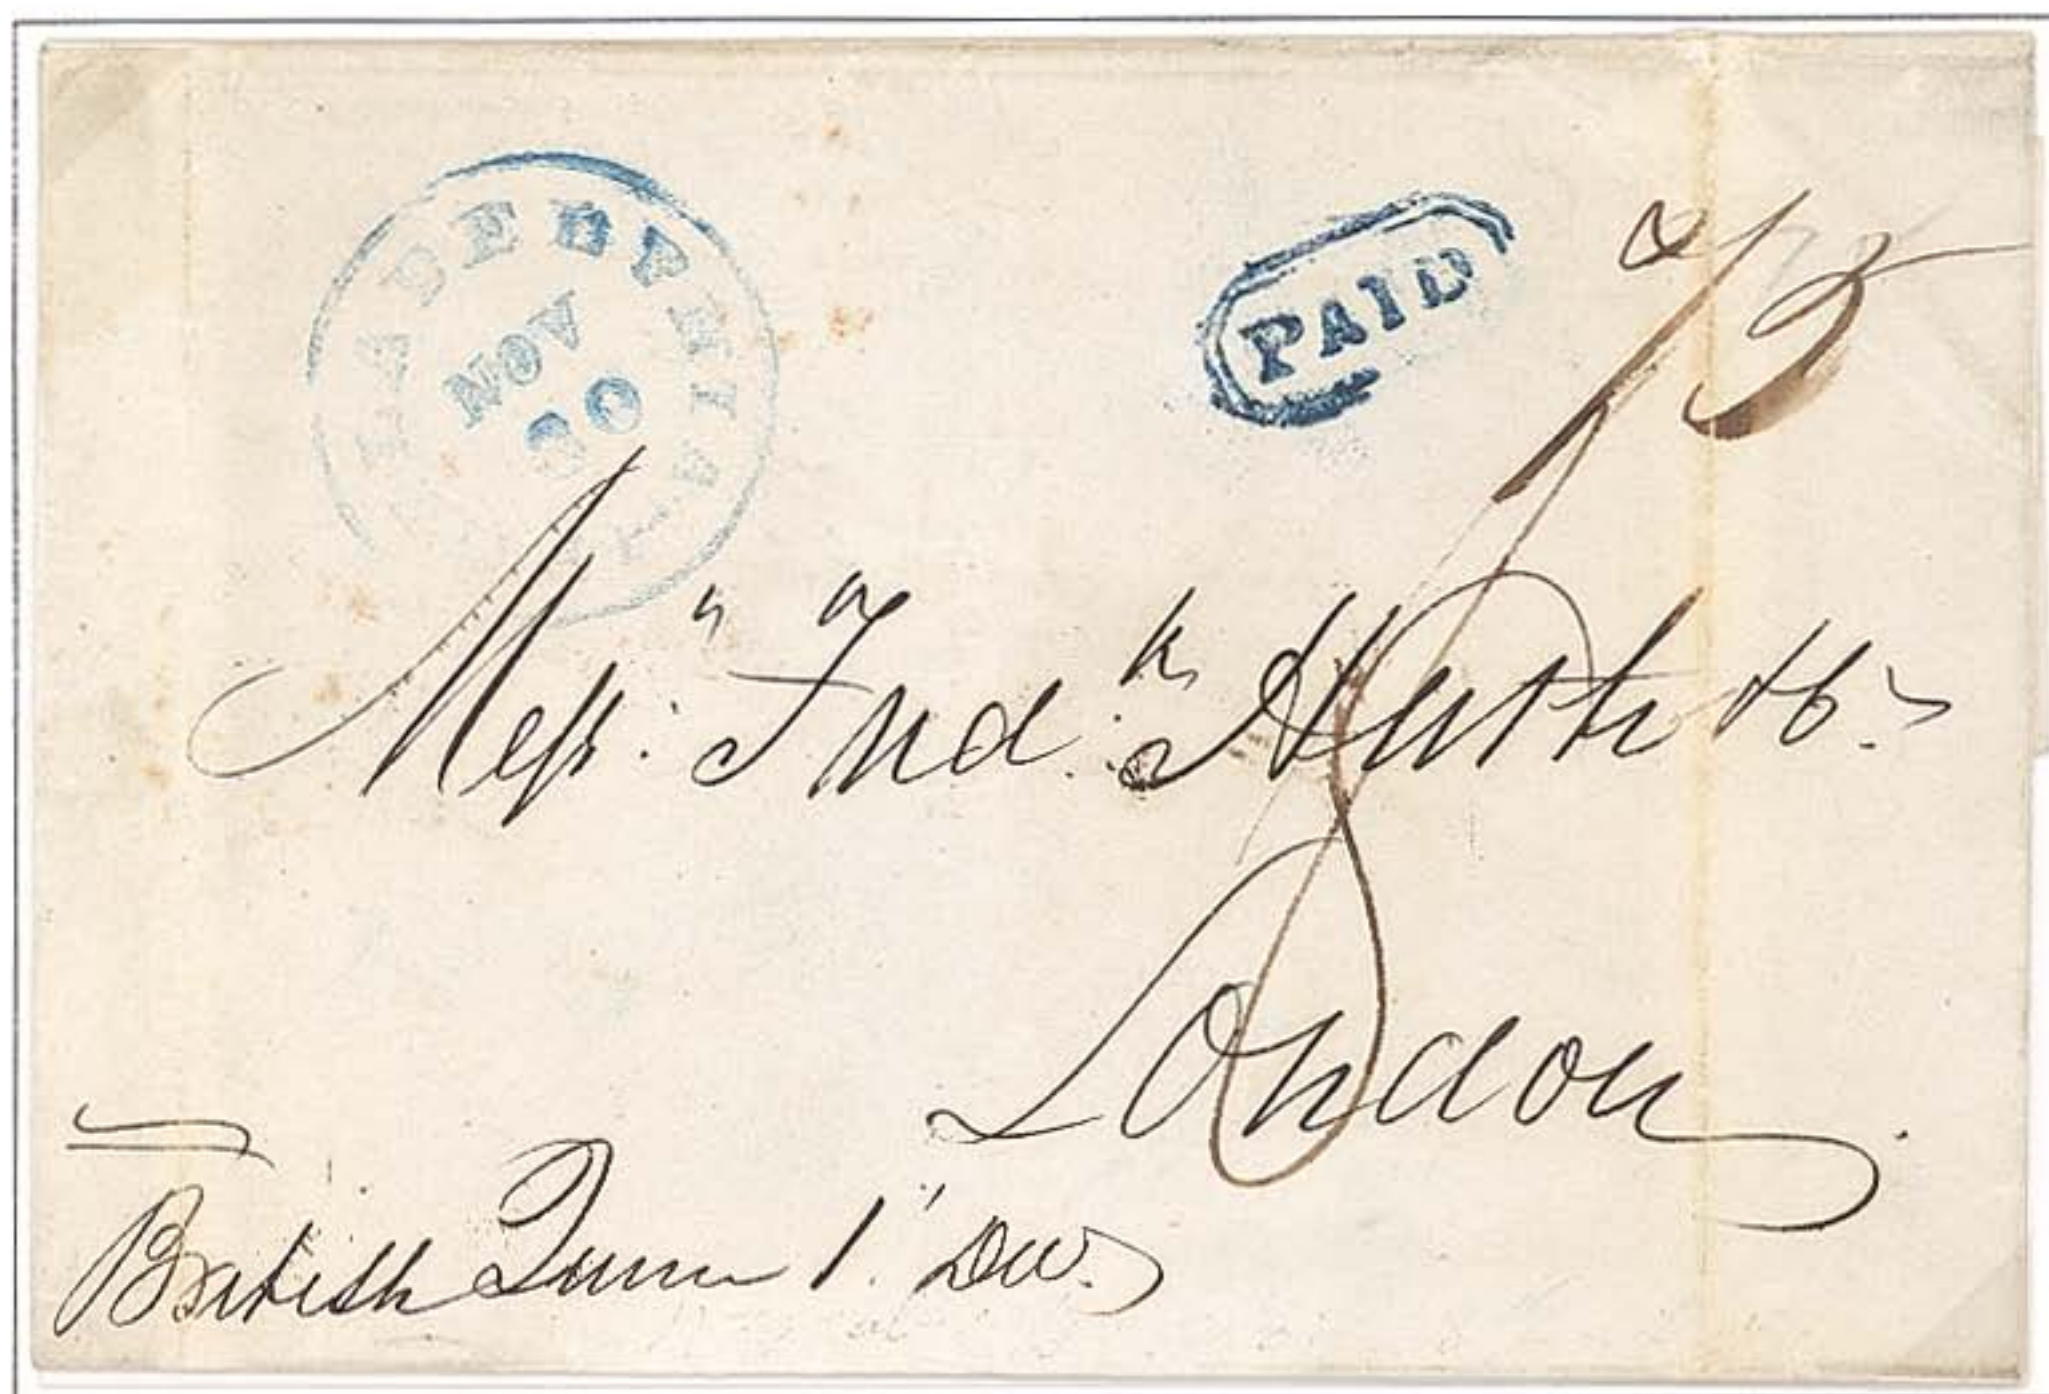 PHILADELPHIA
NOV
30
PAID
2/5
8
Mess.rs Fred.k Huth & Co.
London.
British Queen 1.' Dec.